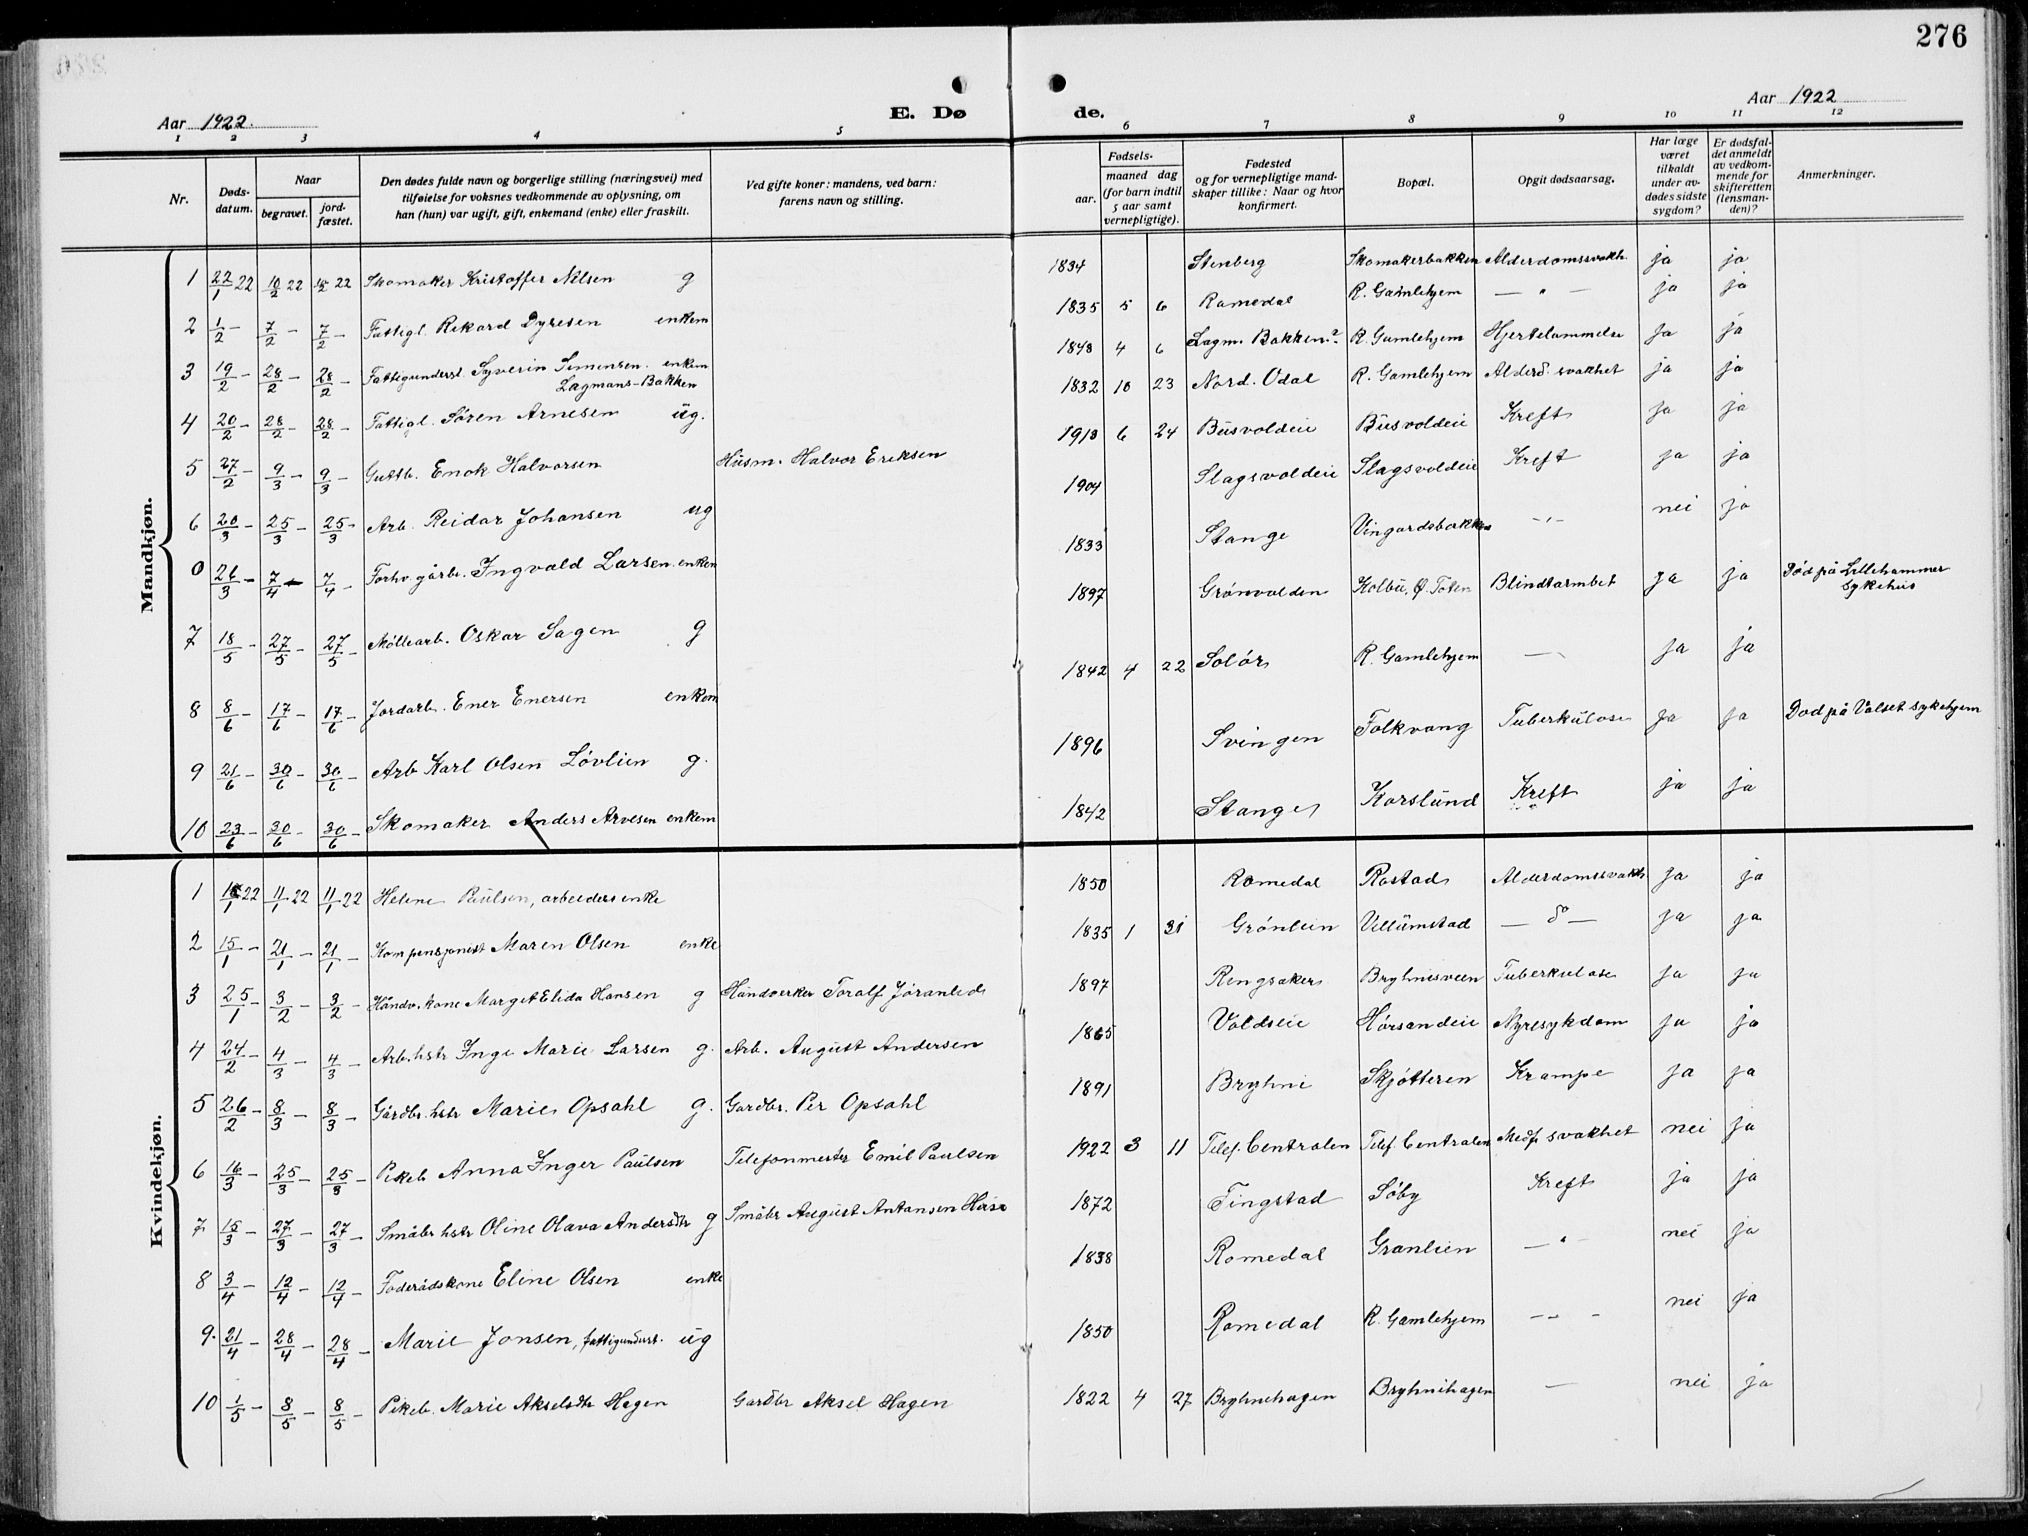 276
Aar 1922.
E. Dø
de.
Aar 1922
1 2 3 4 5 6 7 8 9 10 11 12
Nr.
Døds-
datum.
Naar
begravet.
jord-
fæstet.
Den dødes fulde navn og borgerlige stilling (næringsvei) med
tilføielse for voksnes vedkommende av oplysning, om
han (hun) var ugift, gift, enkemand (enke) eller fraskilt.
Ved gifte koner: mandens, ved barn:
farens navn og stilling.
Fødsels-
aar.
maaned dag
(for barn indtil
5 aar samt
vernepligtige).
Fødested
og for vernepligtige mand-
skaper tillike: Naar og hvor
konfirmert.
Bopæl.
Opgit dødsaarsag.
Har læge
været
tilkaldt
under av-
dødes sidste
sygdom?
Er dødsfal-
det anmeldt
av vedkom-
mende for
skifteretten
(lensman-
den)?
Anmerkninger.
Mandkjøn.
1 22/1 22 10/2 22 10/2 22 Skomaker Kristoffer Nilsen g 1834 Stenberg Skomakerbakken Alderdomssvakh. ja ja
2 1/2 – 7/2 – 7/2 – Fattigl. Rikard Dyresen enkem 1835 5 6 Romedal R. Gamlehjem — " — ja ja
3 19/2 – 28/2 – 28/2 – Fattigunderst. Syverin Simensen. enkem 1843 4 6 Lagm. Bakken? R. Gamlehjem Hjertelammelse ja ja
Lagmans-Bakken
4 20/2 – 28/2 – 28/2 – Fattigl. Søren Arnesen ug. 1832 10 23 Nord. Odal R. Gamlehjem Alderd. svakhet ja ja
5 27/2 – 9/3 – 9/3 – Guttb. Enok Halvorsen Husm. Halvor Eriksen 1913 6 24 Busvoldeie Busvoldeie Kreft ja ja
6 20/3 – 25/3 – 25/3 – Arb. Reidar Johansen ug 1904 Slagsvoldeie Slagsvoldeie Kreft ja ja
0 26/3 – 7/4 – 7/4 – Forhv. gårbr. Ingvald Larsen. enkem 1833 Stange Vingardsbakken –"– nei ja
7 18/5 – 27/5 – 27/5 – Møllearb. Oskar Sagen g 1897 Grønvolden Kolbu, Ø. Toten Blindtarmbet ja ja Død på Lillehammer
sykehus
8 8/6 – 17/6 – 17/6 – Jordarb. Ener Enersen enkem 1842 4 22 Solør R. Gamlehjem — ja ja
9 21/6 – 30/6 – 30/6 – Arb Karl Olsen Løvlien g. 1896 Svingen Folkvang Tuberkulose ja ja Dod på Valset sykehjem
10 23/6 – 30/6 – 30/6 – Skomaker Anders Arvesen enkem 1842 Stange Korslund Kreft ja ja
Kvindekjøn.
1 22 11/1 22 11/1 22 Helene Paulsen, arbeidersenke 1850 Romedal Rostad Alderdomssvakh ja ja
2 15/1 – 21/1 – 21/1 – Kompensjonist Maren Olsen enke 1835 1 31 Grønlien Villumstad — do — ja ja
3 25/1 – 3/2 – 3/2 – Håndv. kone Margit Elida Hansen g Håndverker Toralf Jøranlid 1897 Ringsaker Bryhnisveen Tuberkulose ja ja
4 24/2 – 4/3 – 4/3 – Arb. hstr Inge Marie Larsen g. Arb. August Andersen 1865 Voldseie Horsandeie Nyresykdom ja ja
5 26/2 – 8/3 – 8/3 – Gårdbr. hstr Marie Opsahl g. Gardbr. Per Opsahl 1891 Bryhni Skjøtteren Krampe ja ja
6 16/3 – 25/3 – 25/3 – Pikeb Anna Inger Paulsen Telefonmester Emil Paulsen 1922 3 11 Telef. Centralen Telef. Centralen Medf. svakhet nei ja
7 15/3 – 27/3 – 27/3 – Småbr hstr Oline Olava Andersdtr g Småbr August Antansen 1872 Tingstad Soby Kreft ja ja
8 3/4 – 12/4 – 12/4 – Foderådskone Eline Olsen enke 1838 Romedal Granlien — " — nei ja
9. 21/4 – 28/4 – 28/4 – Marie Jonsen, fattigunderst. ug 1850 Romedal R. Gamlehjem — — – nei ja
10 1/5 – 8/5 – 8/5 – Pikeb. Marie Akselsdtr Hagen Gardbr Aksel Hagen 1822 4 27 Bryhnehagen Bryhnihagen — nei ja